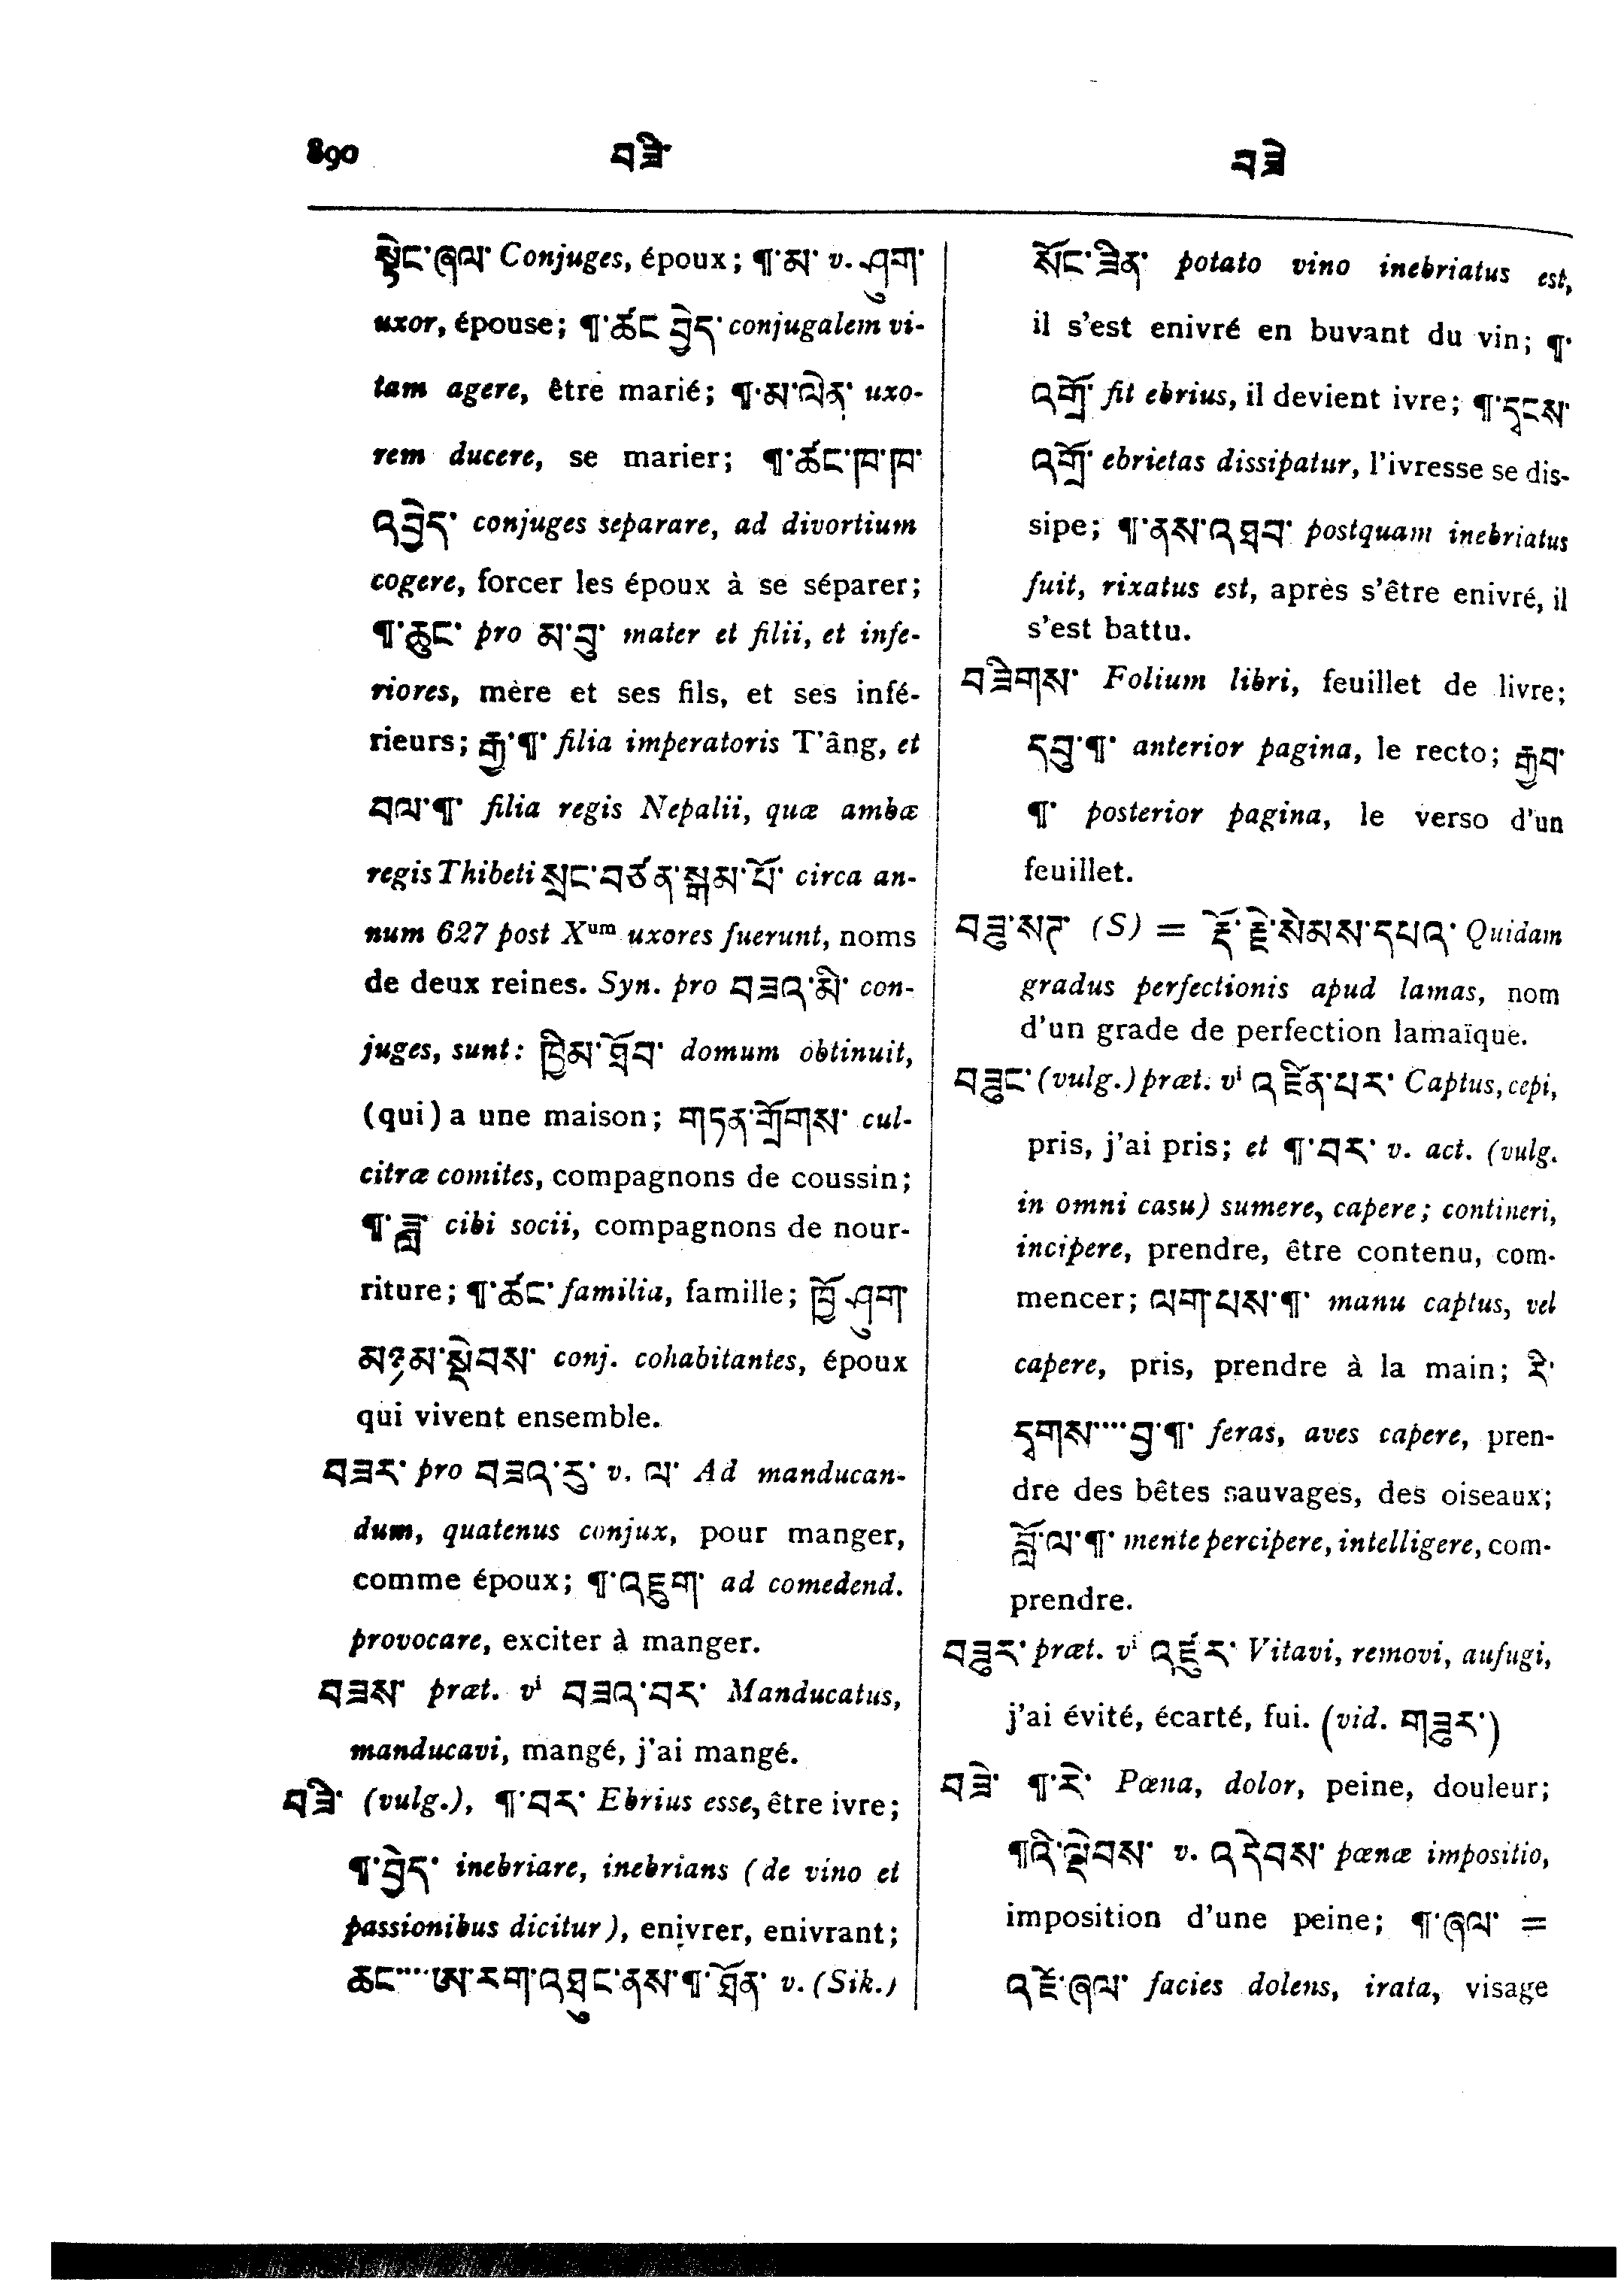 890 བཟི་ བཟེ
སྟེང་ཞལ་ Conjuges, époux; ¶་མ་ v. ཤུག་
uxor, épouse; ¶་ཚང བྱེད་ conjugalem vi-
tam agere, être marié; ¶་མ་ལེན་ uxo-
rem ducere, se marier; ¶་ཚང་ཁ་ཁ་
འབྱེད་ conjuges separare, ad divortium
cogere, forcer les époux à se séparer;
¶་ཆུང་ pro མ་བུ་ mater et filii, et infe-
riores, mère et ses fils, et ses infé-
rieurs; རྒྱ་¶་ filia imperatoris T'âng, et
བལ་¶་ filia regis Nepalii, quæ ambæ
regis Thibeti སྲང་བཙན་སྒམ་པོ་ circa an-
num 627 post Xum uxores fuerunt, noms
de deux reines. Syn. pro བཟའ་མི་ con-
juges, sunt: ཁྱིམ་ཐོབ་ domum obtinuit,
(qui) a une maison; གདན་གྲོགས་ cul-
citræ comites, compagnons de coussin;
¶་ཟླ་ cibi socii, compagnons de nour-
riture; ¶་ཚང་ familia, famille; ཁྱོ་ཤུག་
མཉམ་སྡེབས་ conj. cohabitantes, époux
qui vivent ensemble.
བཟར་ pro བཟའ་རུ་ v. ལ་ Ad manducan-
dum, quatenus conjux, pour manger,
comme époux; ¶་འཇུག་ ad comedend.
provocare, exciter à manger.
བཟས་ præt. vi བཟའ་བར་ Manducatus,
manducavi, mangé, j'ai mangé.
བཟི་ (vulg.), ¶་བར་ Ebrius esse, être ivre;
¶་བྱེད་ inebriare, inebrians (de vino et
passionibus dicitur), enivrer, enivrant;
ཆང་...ཨ་རག་འཐུང་ནས་¶་ཐོན་ v. (Sik.)
སོང་ཟིན་ potato vino inebriatus est,
il s'est enivré en buvant du vin; ¶་
འགྲོ་ fit ebrius, il devient ivre; ¶་དྭངས་
འགྲོ་ ebrietas dissipatur, l'ivresse se dis-
sipe; ¶་ནས་འཐབ་ postquam inebriatus
fuit, rixatus est, après s'être enivré, il
s'est battu.
བཟིགས་ Folium libri, feuillet de livre;
དབུ་¶་ anterior pagina, le recto; རྒྱབ་
¶་ posterior pagina, le verso d'un
feuillet.
བཟུ་སཏ་ (S) = རྡོ་རྗེ་སེམས་དཔའ་ Quidam
gradus perfectionis apud lamas, nom
d'un grade de perfection lamaïque.
བཟུང་ (vulg.) præt. vi འཛིན་པར་ Captus, cepi,
pris, j'ai pris; et ¶་བར་ v. act. (vulg.
in omni casu) sumere, capere; contineri,
incipere, prendre, être contenu, com-
mencer; ལག་པས་¶་ manu captus, vel
capere, pris, prendre à la main; རི་
དྭགས་...བྱ་¶་ feras, aves capere, pren-
dre des bêtes sauvages, des oiseaux;
བློ་ལ་¶་ mente percipere, intelligere, com-
prendre.
བཟུར་ præt. vi འཛུར་ Vitavi, removi, aufugi,
j'ai évité, écarté, fui. (vid. གཟུར་)
བཟེ་ ¶་རེ་ Pœna, dolor, peine, douleur;
¶འི་ལྡེབས་ v. འདེབས་ pœnæ impositio,
imposition d'une peine; ¶་ཞལ་ =
འཛེ་ཞལ་ facies dolens, irata, visage